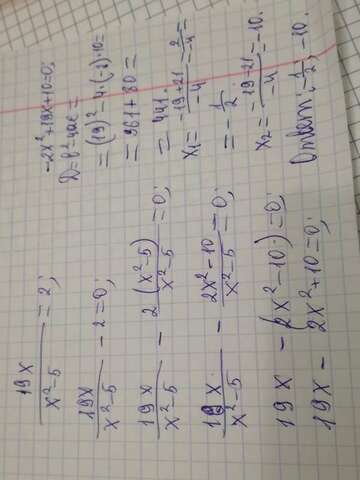 19x / x²-5 = 2;
19x / x²-5 - 2 = 0;
19x / x²-5 - 2 (x²-5) / x²-5 = 0;
19x / x²-5 - 2x²-10 / x²-5 = 0;
19x - (2x²-10) = 0;
19x - 2x²+10=0;
-2x²+19x+10=0;
D=b²-4ac=
=(19)²-4·(-2)·10=
=361+80=
=441.
x₁= -19+21 / -4 = 2 / -4 =
= -1/2;
x₂= -19-21 / -4 = -10.
Ответ: -1/2; -10.